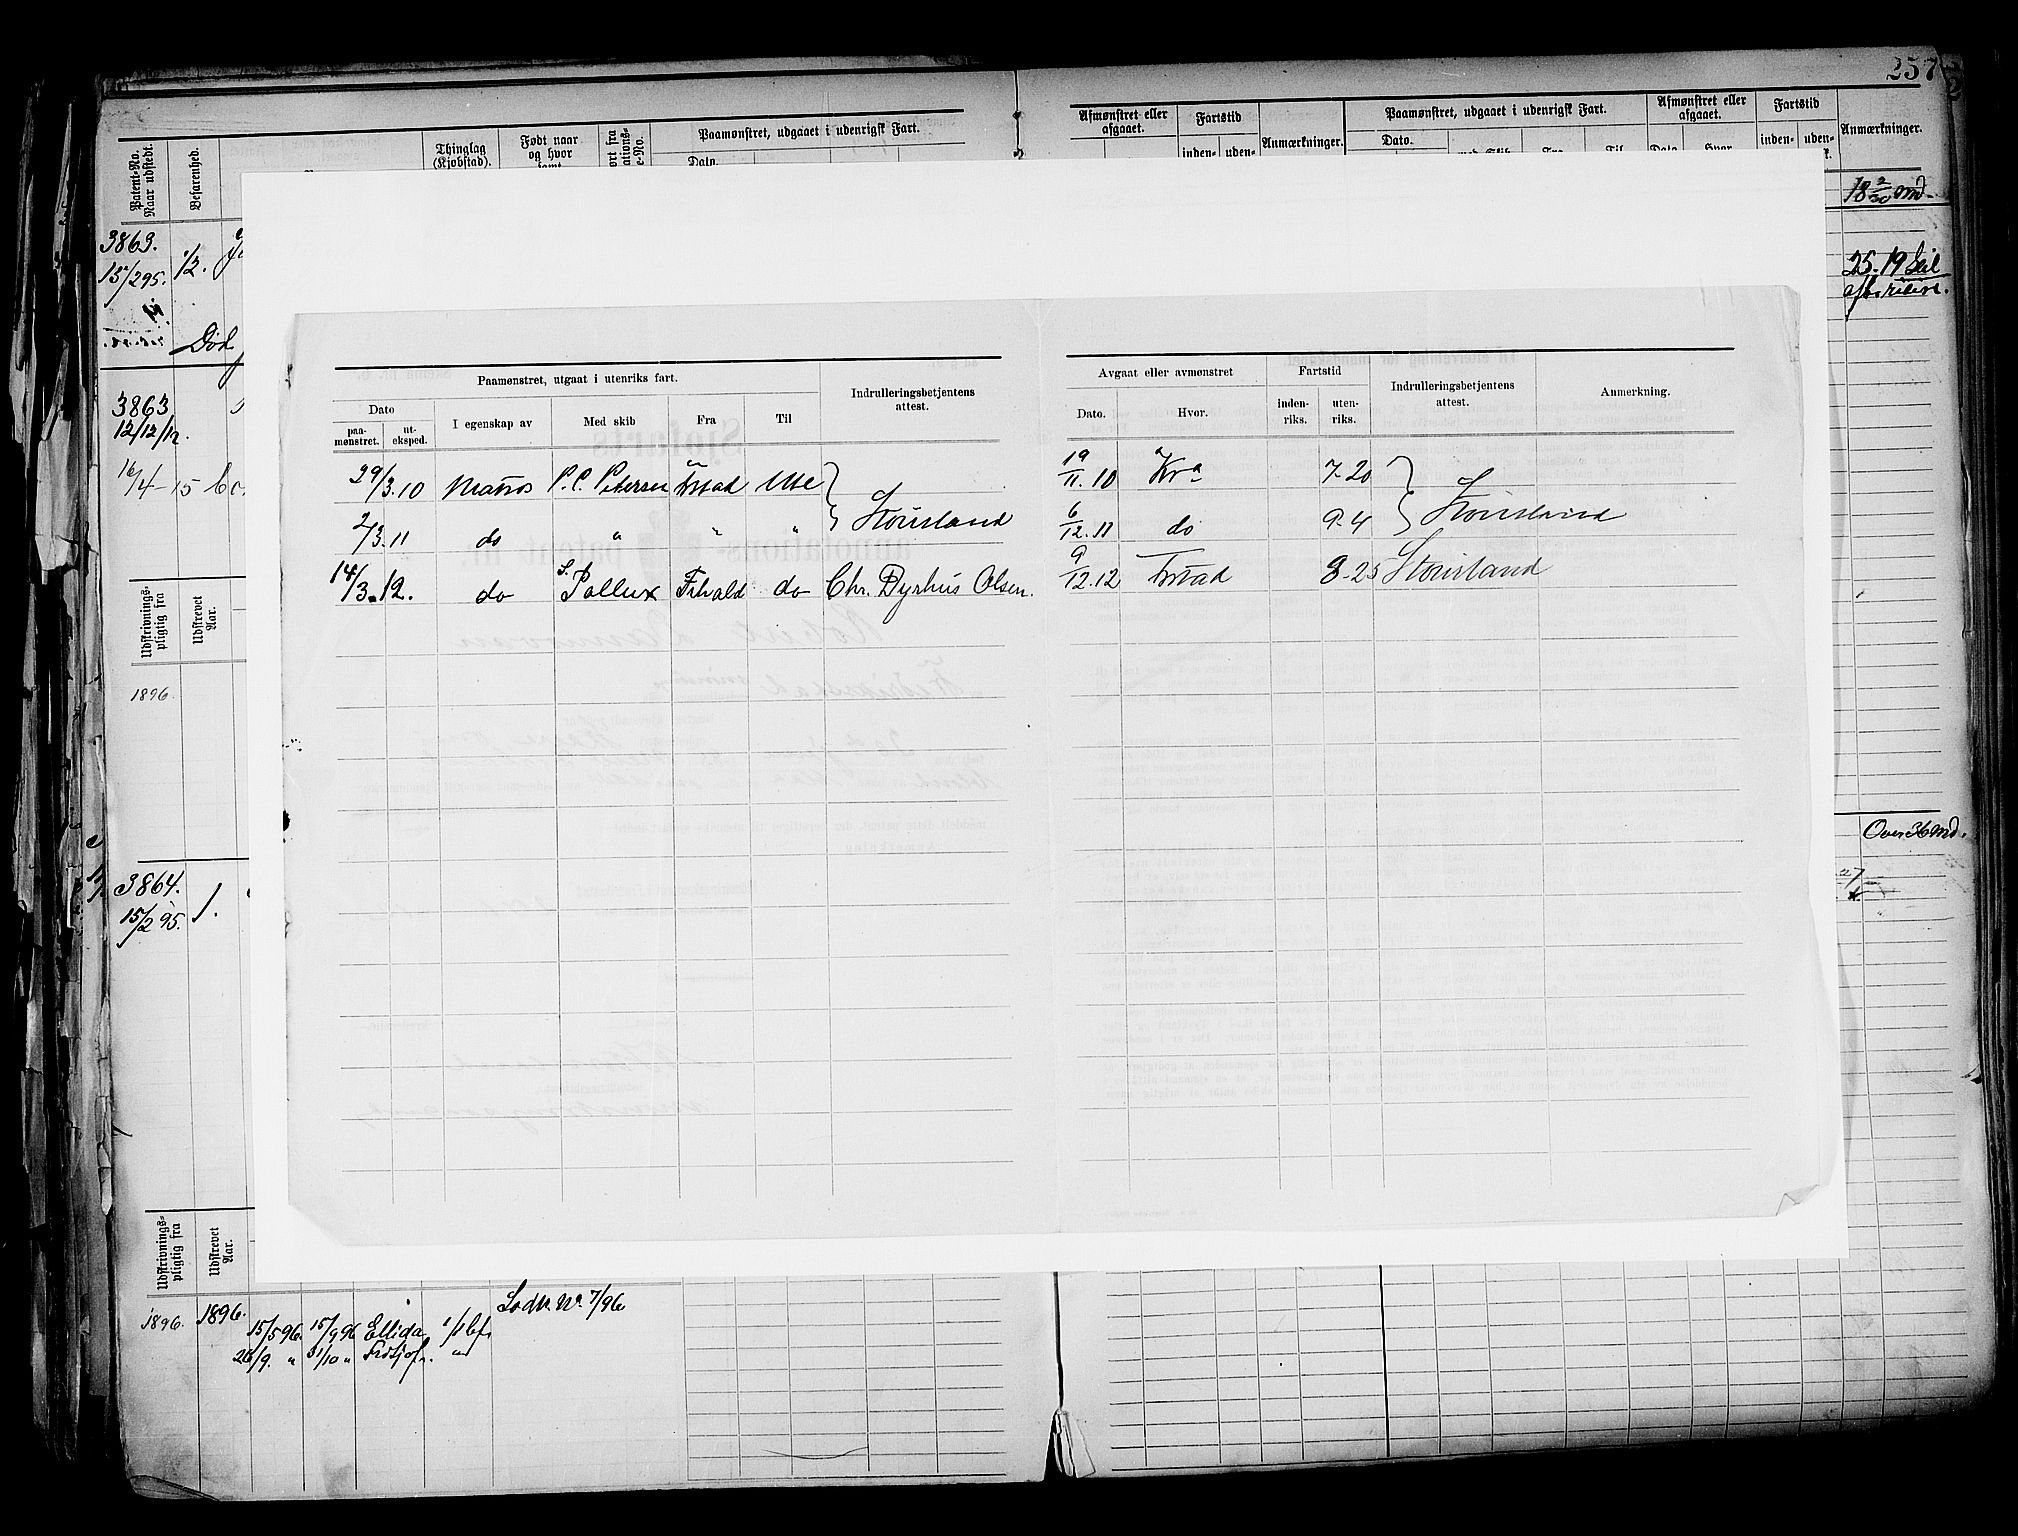 257
Patent-No. Naar udstedt.
Befarenhed.
Thinglag (Kjøbstad).
Født naar og hvor
Paamønstret, udgaaet i udenrigsk Fart.
Dato.
Afmønstret eller afgaaet.
Fartstid
inden- uden-
Anmærkninger.
Paamønstret, udgaaet i udenrigsk Fart.
Dato.
Fra Til
Afmønstret eller afgaaet.
Dato Hvor
Fartstid
inden- uden-
Anmærkninger.
3863.
15/2 95.
1/2.
Død
18 2/30 md.
25.19 Seil
3863
12/12/12.
16/4-15
Udskrivnings-pligtig fra
Udskrevet Aar.
1896.
3864.
15/2 95.
1.
Over 36 md.
Paamønstret, utgaat i utenriks fart.
Indrulleringsbetjentens attest.
Dato
paa-mønstret.
ut-eksped.
I egenskap av
Med skib
Fra
Til
29/3.10 Matros P. C. Petersen Frstad Ute
2/3.11 do " " " Stousland
14/3.12. do S. Pollux Frhald do Chr. Dyrhus Olsen.
Avgaat eller avmønstret
Fartstid
Indrulleringsbetjentens attest.
Anmerkning.
Dato.
Hvor.
inden-riks.
uten-riks.
19/11.10 Kra 7-20
6/12.11 do 9-4 Stousland
9/12.12 Frstad 8-25 Stousland
Udskrivnings-pligtig fra
Udskrevet Aar.
1896. 1896.
Lodtr. No. 7/96
15/5 96. 15/9 96 Ellida
26/9. " 31/10 " Fridtjof.